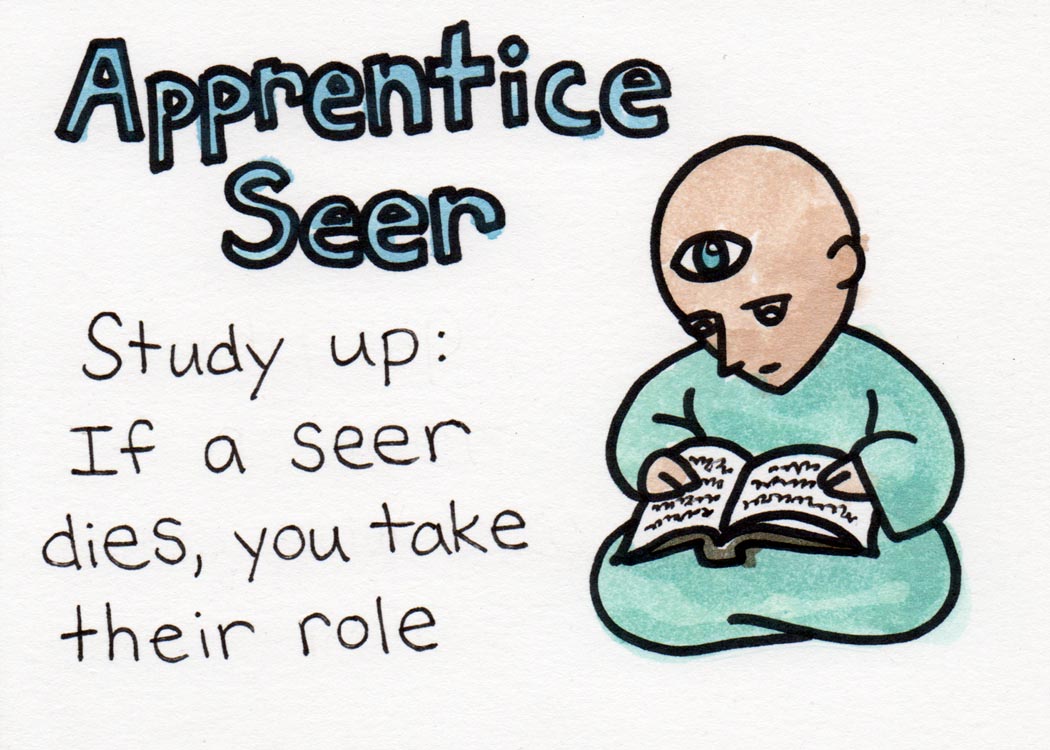 Apprentice
Seer
Study up:
If a seer
dies, you take
their role